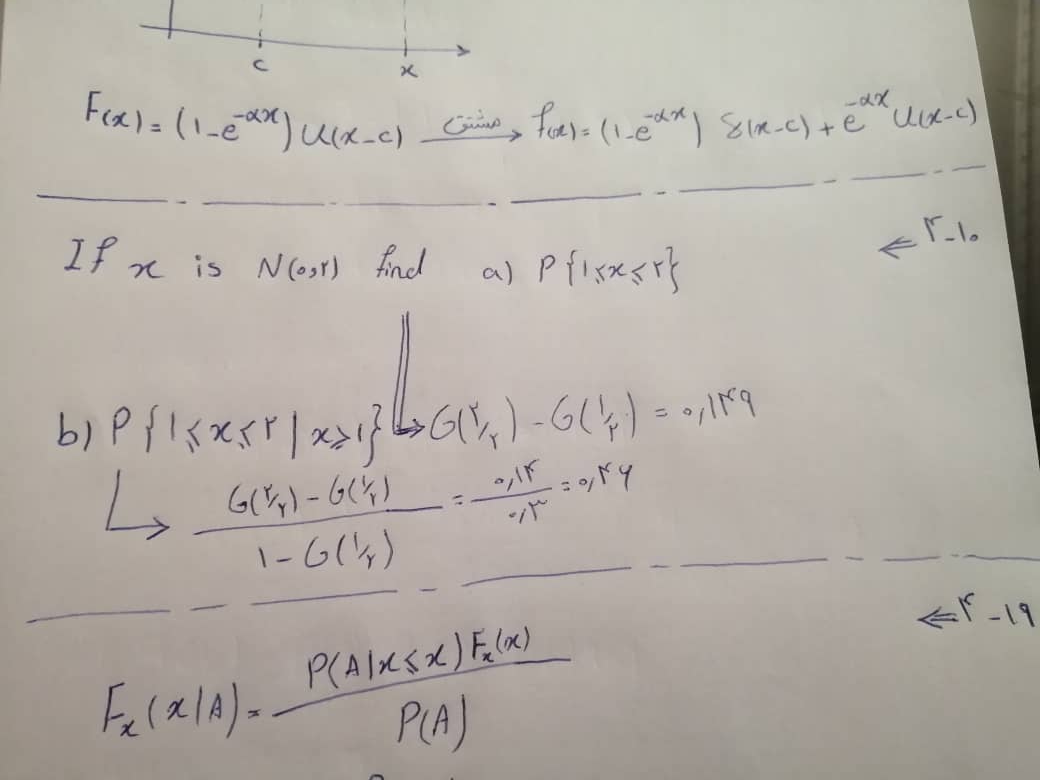 c x
F(x) = (1-e^-αx) U(x-c) مشتق → f(x) = (1-e^-αx) δ(x-c) + e^-αx U(x-c)
۴-۱۰ ⇐
If x is N(۰,۲) find a) P{۱≤x≤۲}
b) P{۱≤x≤۲ | x≥۱} → G(۲/۲) - G(۱/۲) = ۰,۱۴۹
G(۲/۲) - G(۱/۲) / ۱ - G(۱/۲) = ۰,۱۴ / ۰,۳ = ۰,۴۶
۴-۱۹ ⇐
Fx(x|A) = P(A|x≤x) Fx(x) / P(A)